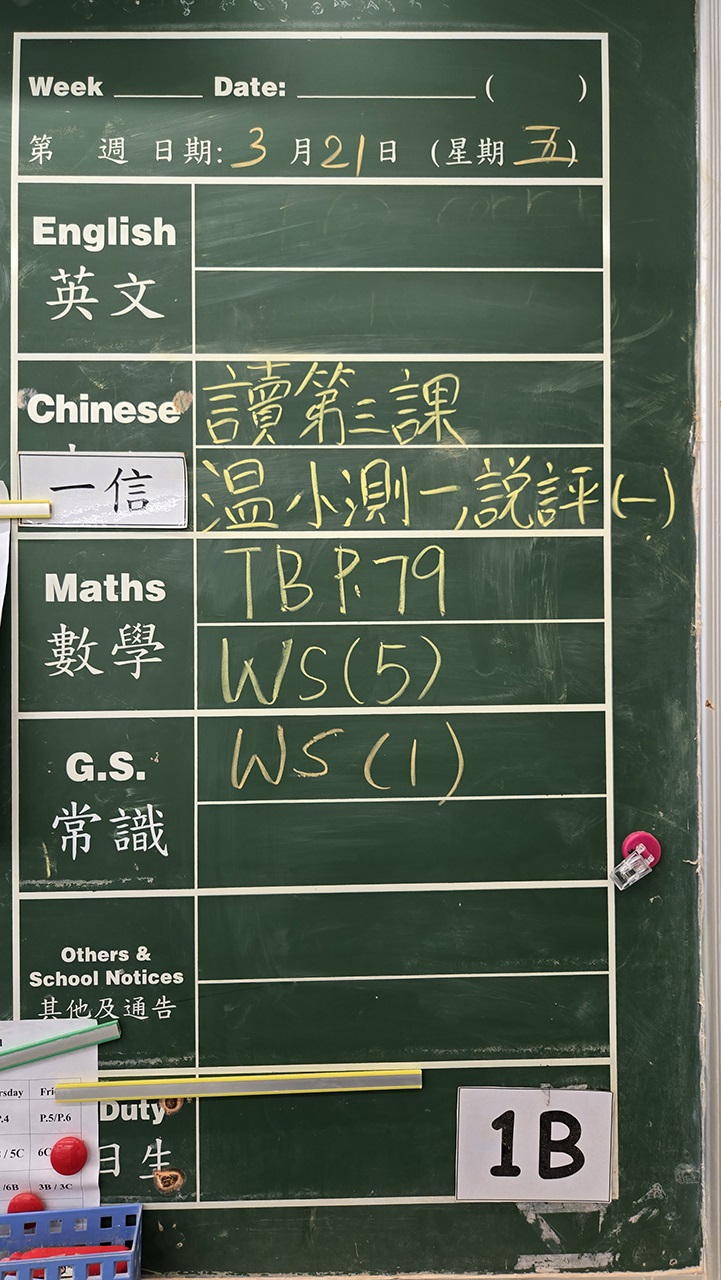 Week ______ Date: ____________ ( )
第 週 日期: 3 月 21 日 (星期 五)
English
英文
Chinese
讀第三課
一信
温小測一,説評(一)
Maths
數學
TB P.79
WS(5)
G.S.
常識
WS(1)
Others &
School Notices
其他及通告
Duty
日生
1B
rsday Fri
P.5/P.6
/ 5C 6C
/6B 3B / 3C